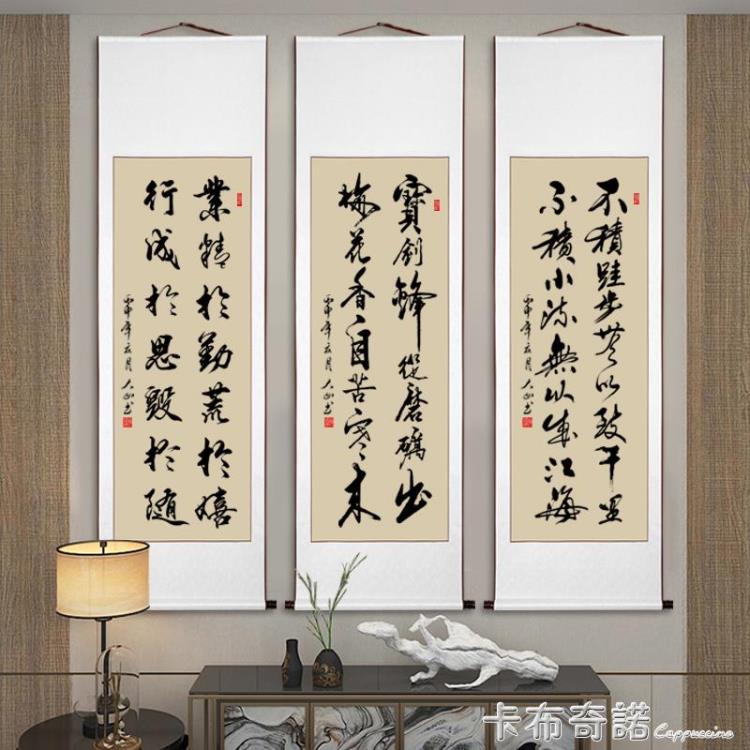 不積跬步無以致千里
不積小流無以成江海
寶劍鋒從磨礪出
梅花香自苦寒來
業精於勤荒於嬉
行成於思毀於隨
卡布奇諾
Cappuccino